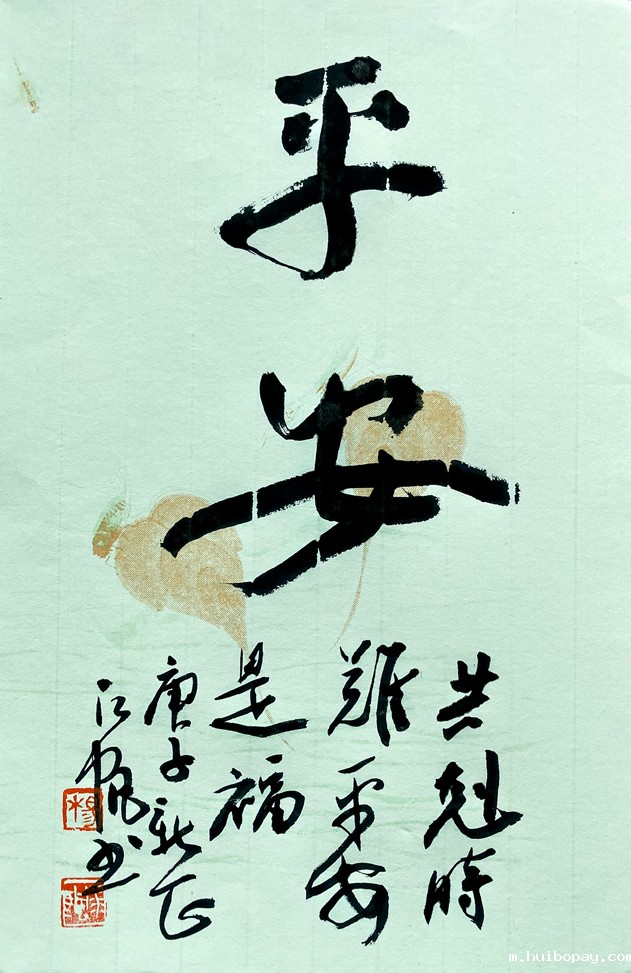 平安
共尅時
難平安
是福
庚子新正
江帆书
杨
m.huibopay.com